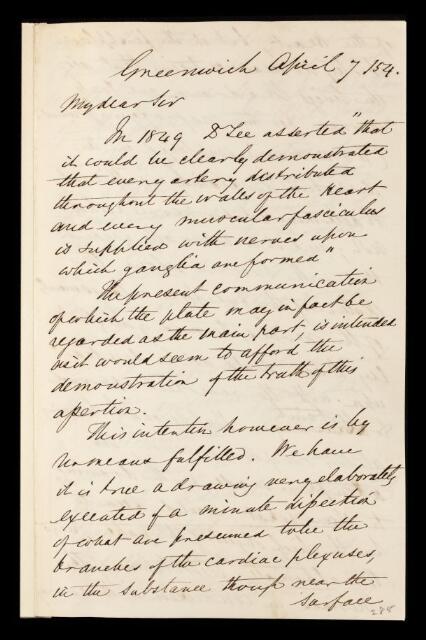 Greenwich April 7 /54.
My dear Sir
In 1849 Dr Lee asserted "that
it could be clearly demonstrated
that every artery distributed
throughout the walls of the Heart
and every muscular fasciculus
is supplied with nerves upon
which ganglia are formed"
The present communication
of which the plate may in fact be
regarded as the main part, is intended
as it would seem to afford the
demonstration of the truth of this
assertion.
This intention however is by
no means fulfilled. We have
it is true a drawing very elaborately
executed of a minute dissection
of what are presumed to be the
branches of the cardiac plexuses,
in the substance though near the
surface
288